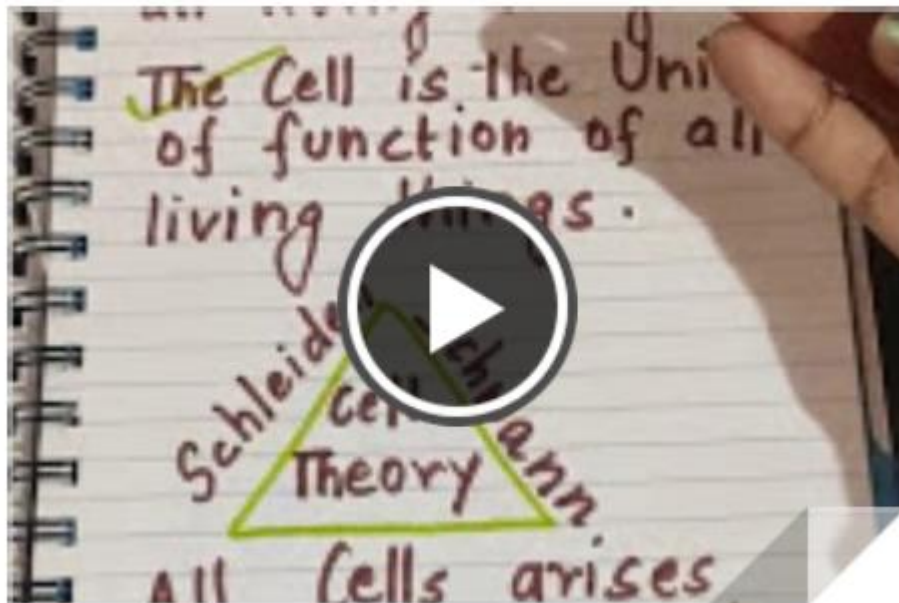 The Cell is the Uni
of function of all
living things.
Schleiden
Schwann
Cell
Theory
All Cells arises